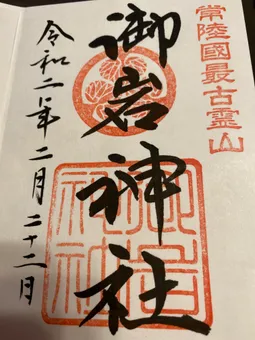 常陸國最古霊山
御岩神社
令和二年二月二十二月
御岩神社